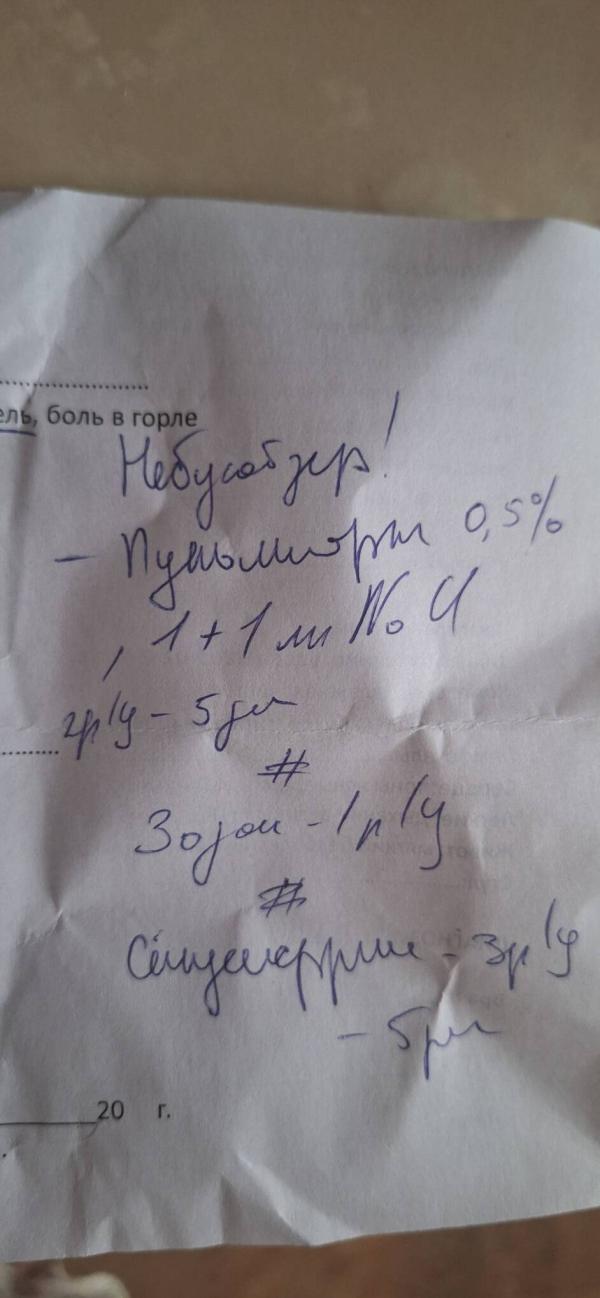 ель, боль в горле
Небулайзер!
- Пульмикорт 0,5%
, 1 + 1 мл NaCl
2р/д - 5 дн
#
Зодак - 1 р/д
#
- 3р/д
- 5 дн
20 г.